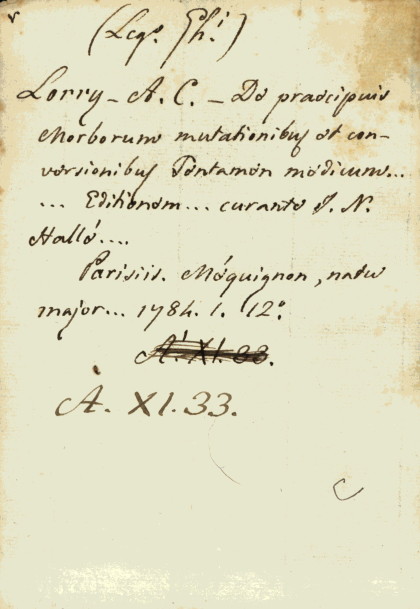 (Legº. Phⁱ.)
Lorry – A. C. – De praecipuis
Morborum mutationibus et con-
versionibus Tentamen medicum...
... Editionem... curante J. N.
Hallé....
Parisiis. Méquignon, natu
major... 1784. 1. 12º.
A. XI. 33.